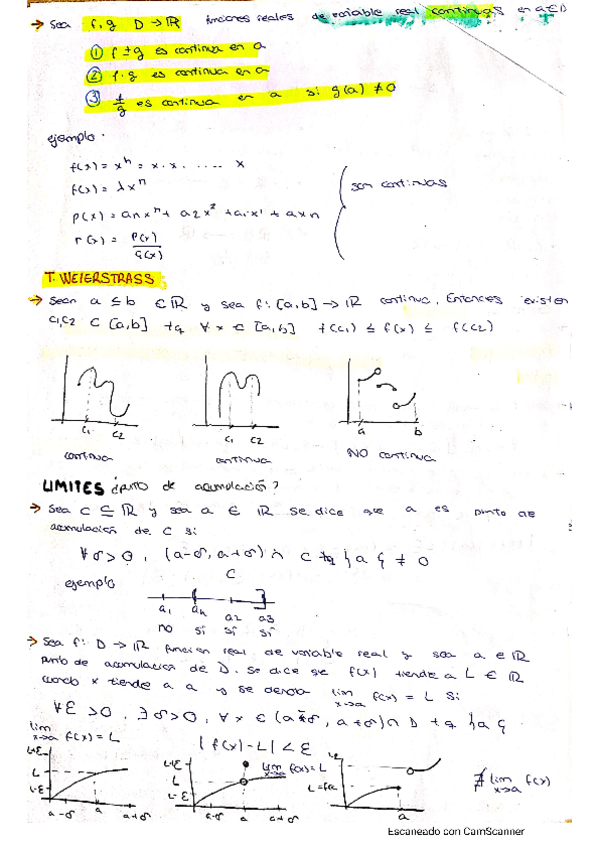 → Sea f, g D → ℝ funciones reales de variable real continuas en a ∈ D
① f ± g es continua en a
② f · g es continua en a
③ f/g es continua en a si g(a) ≠ 0
ejemplo.
f(x) = xⁿ = x · x · ..... x
f(x) = λxⁿ
son continuas
p(x) = anxⁿ + a2x² + a1x¹ + axn
r(x) = p(x)/q(x)
T. WEIERSTRASS
→ Sean a ≤ b ∈ ℝ y sea f: [a,b] → ℝ continua. Entonces existen
c1,c2 ⊂ [a,b] tq ∀ x ∈ [a,b] f(c1) ≤ f(x) ≤ f(c2)
c1 c2
c1 c2
a b
continua
continua
NO continua
LIMITES ¿punto de acumulación?
→ Sea C ⊆ ℝ y sea a ∈ ℝ se dice que a es punto de
acumulación de C si
∀ σ > 0, (a-σ, a+σ) ∩ C tq {a} ≠ 0
ejemplo
C
a1 a4 a2 a3
no sí sí sí
→ Sea f: D → ℝ función real de variable real y sea a ∈ ℝ
punto de acumulación de D. Se dice que f(x) tiende a L ∈ ℝ
cuando x tiende a a y se denota lim x→a f(x) = L si
∀ε > 0, ∃ σ > 0, ∀ x ∈ (a-σ, a+σ) ∩ D tq {a}
|f(x) - L| < ε
lim x→a f(x) = L
L+ε
L
L-ε
a-σ a a+σ
L+ε
L
L-ε
lim x→a f(x) = L
a-σ a a+σ
L2
a
∄ lim x→a f(x)
Escaneado con CamScanner